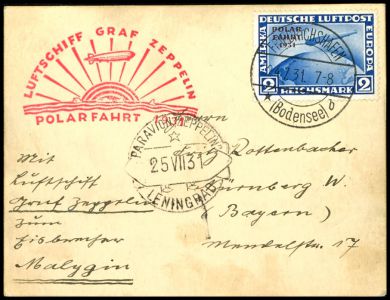 LUFTSCHIFF GRAF ZEPPELIN
POLARFAHRT 1931
DEUTSCHE LUFTPOST
POLAR-
FAHRT
1931
AMERIKA
EUROPA
2 REICHSMARK 2
FRIEDRICHSHAFEN
7.31. 7-8
(Bodensee) d
PARAVION ZEPPELIN
25 VII 31
LENINGRAD
Herrn
Rottenbacher
Nürnberg W.
(Bayern)
Mendelstr. 17
Mit
Luftschiff
Graf Zeppelin
zum
Eisbrecher
Malygin